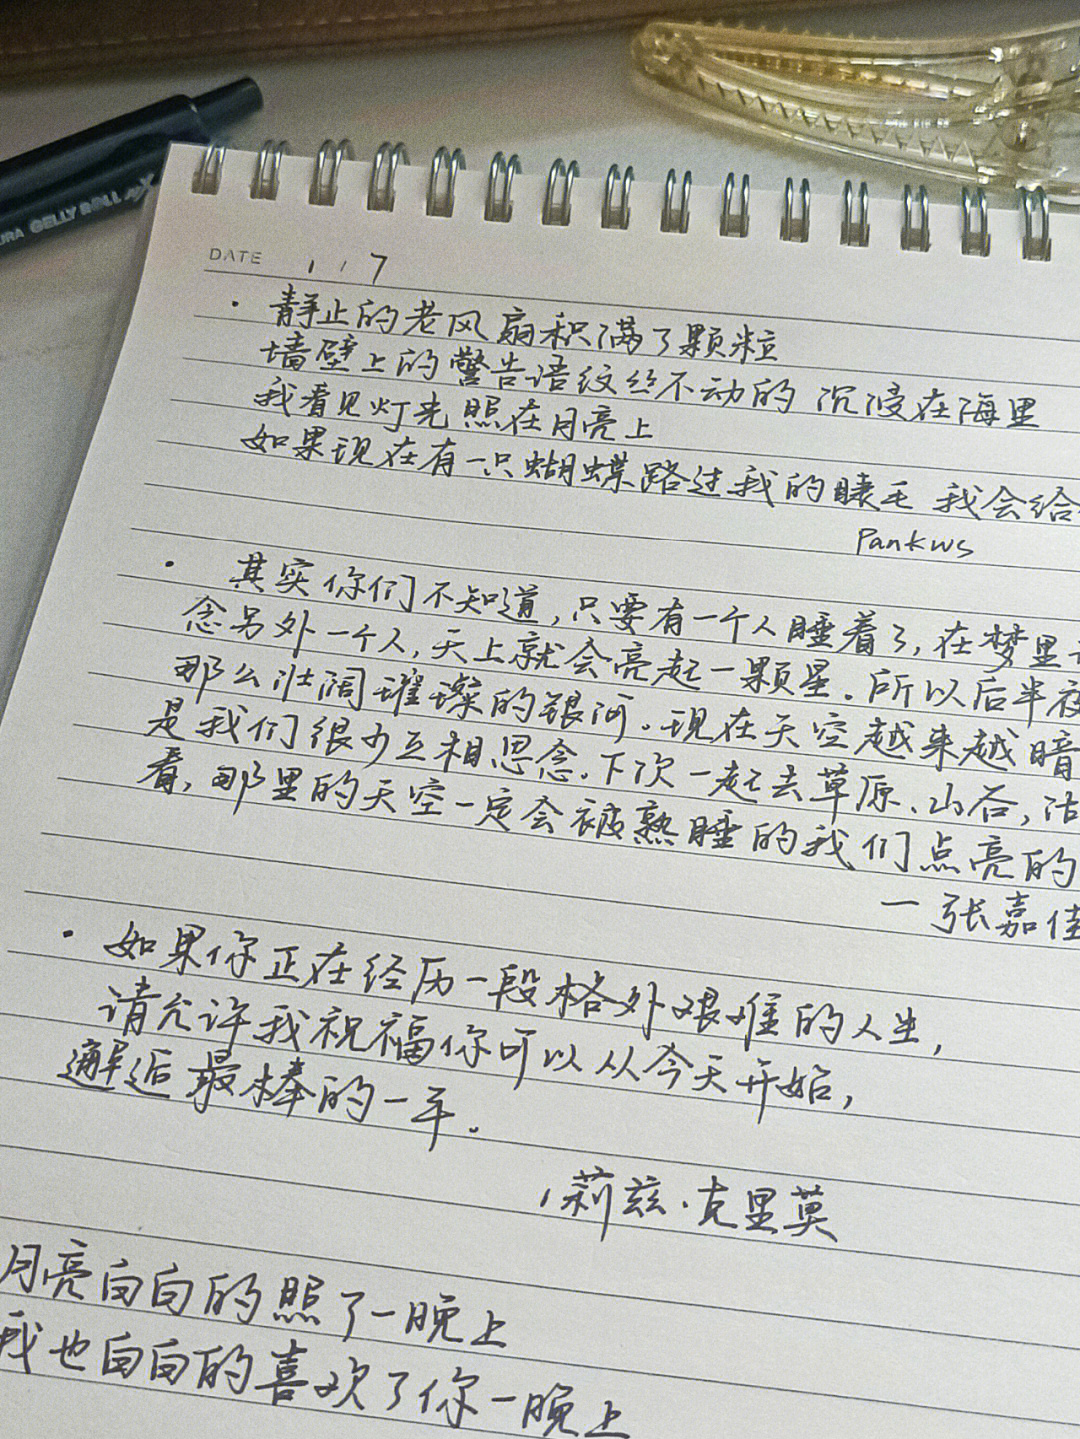 GELLY ROLL
DATE 1 / 7
· 静止的老风扇积满了颗粒
墙壁上的警告语纹丝不动的 沉浸在海里
我看见灯光照在月亮上
如果现在有一只蝴蝶路过我的睫毛 我会给
Pankws
· 其实你们不知道,只要有一个人睡着了,在梦里
念另外一个人,天上就会亮起一颗星.所以后半夜
那么壮阔璀璨的银河.现在天空越来越暗
是我们很少互相思念.下次一起去草原、山谷,沽
看,那里的天空一定会被熟睡的我们点亮的
一张嘉佳
· 如果你正在经历一段格外艰难的人生,
请允许我祝福你可以从今天开始,
邂逅最棒的一年.
莉兹·克里莫
月亮白白的照了一晚上
我也白白的喜欢了你一晚上